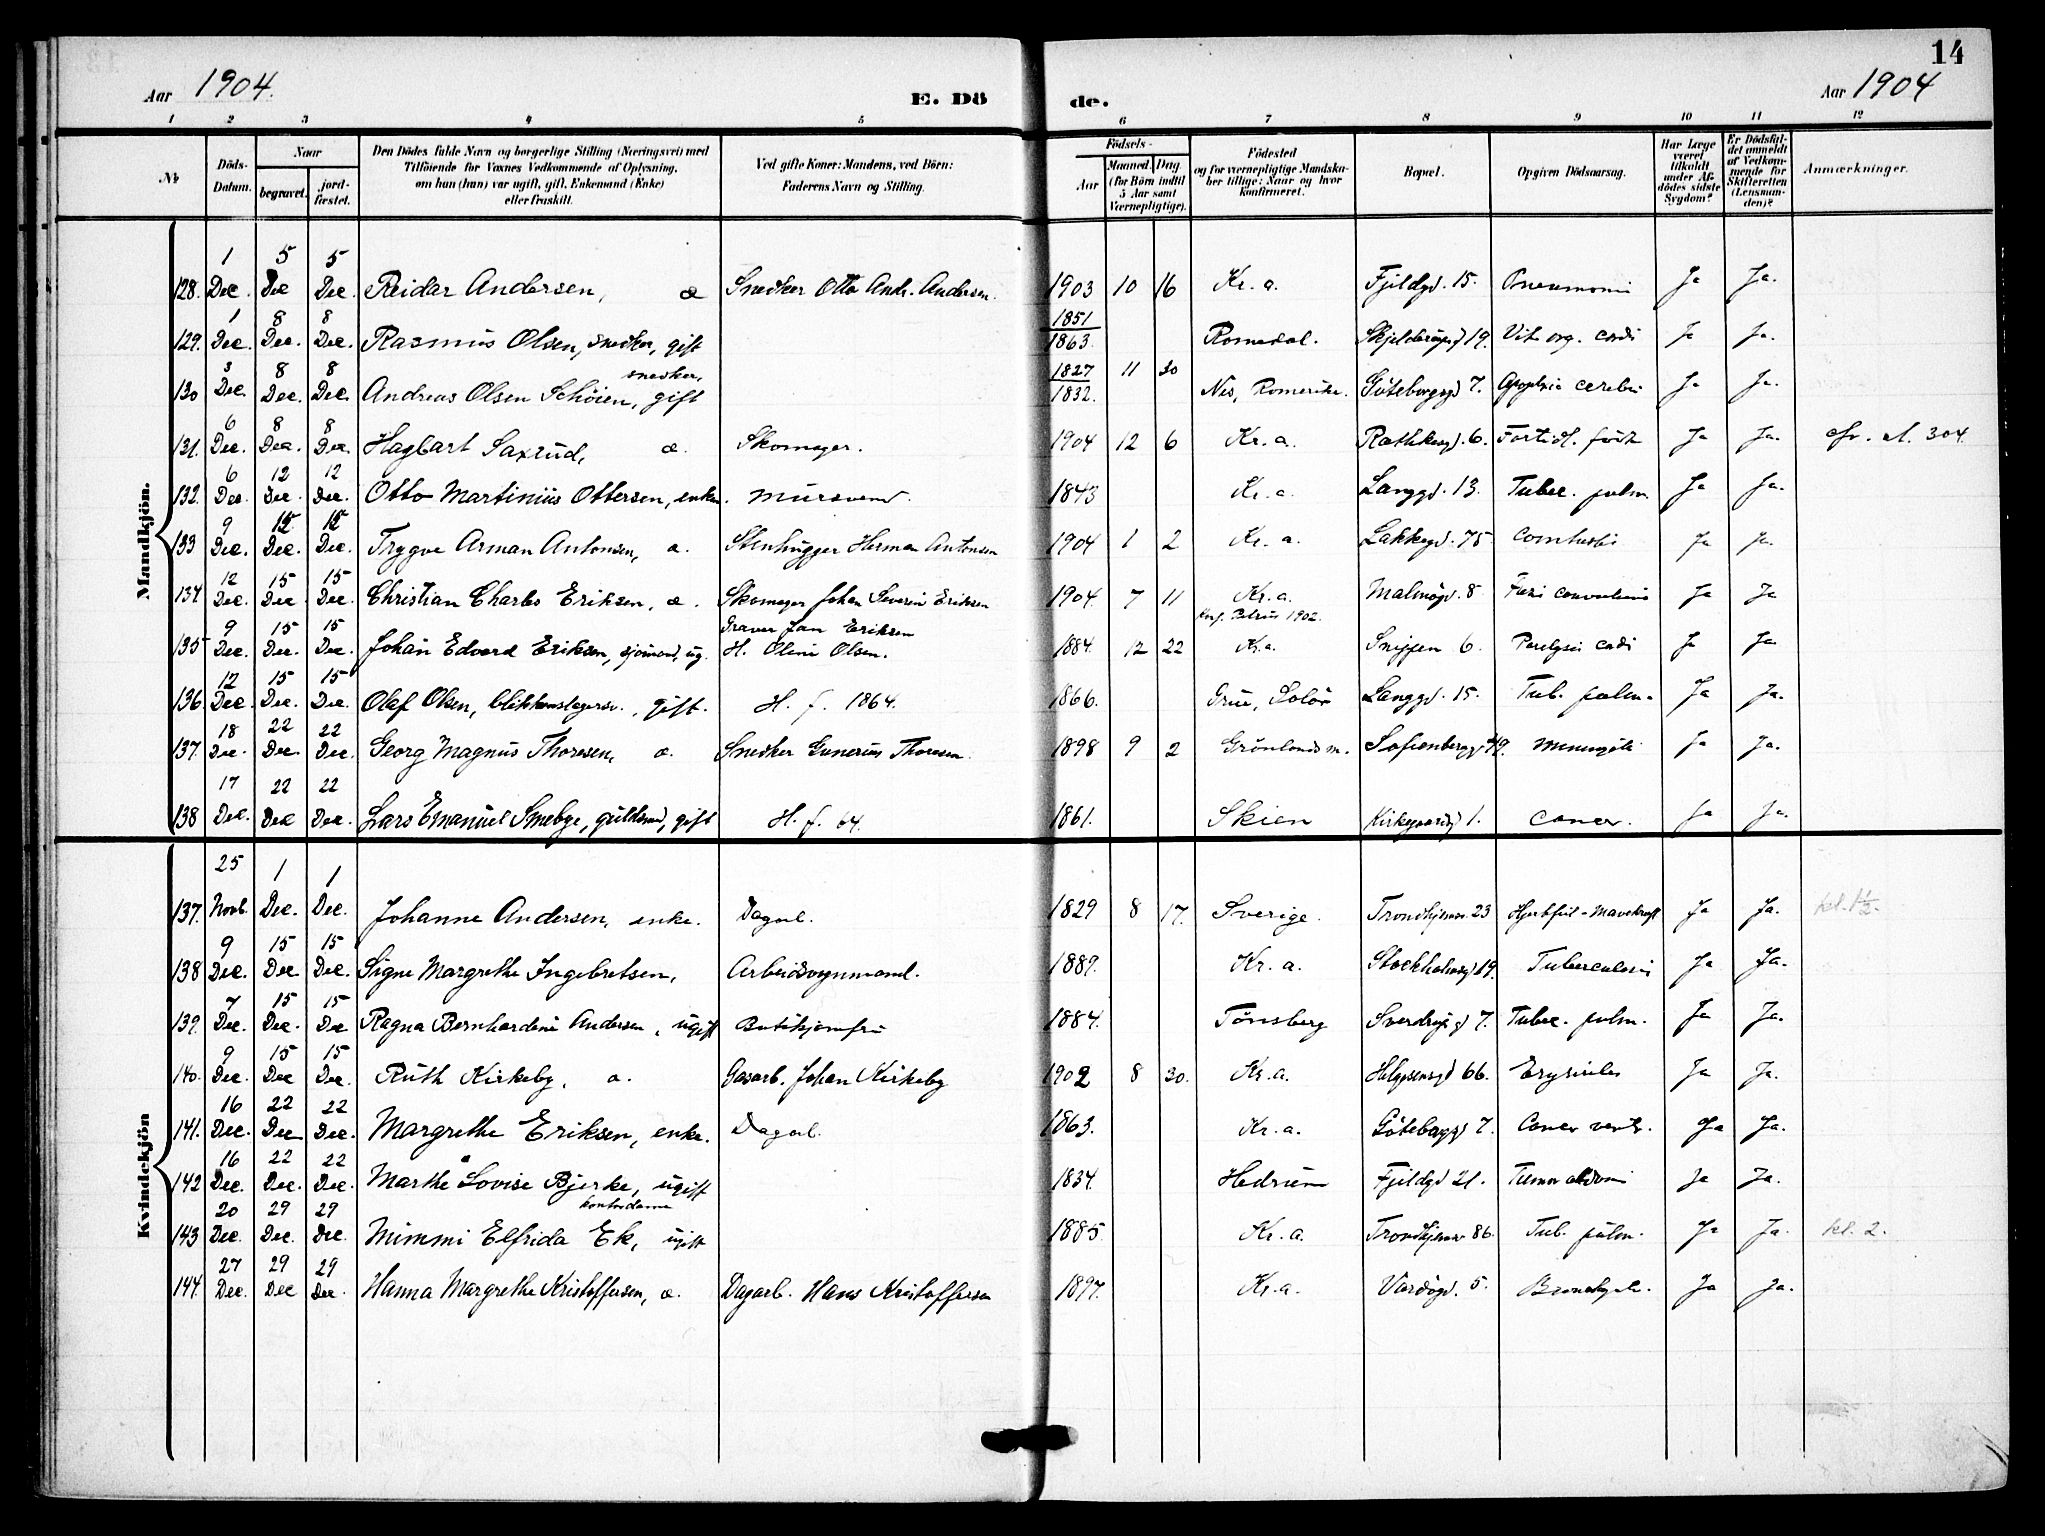 14
Aar 1904. E. Dö de. Aar 1904
1 2 3 4 5 6 7 8 9 10 11 12
No
Döds-Datum.
Naar
begravet. jord-fæstet.
Den Dödes fulde Navn og borgerlige Stilling (Næringsvei) med
Tilföiende for Voxnes Vedkommende af Oplysning,
om han (hun) var ugift, gift, Enkemand (Enke)
eller fraskilt.
Ved gifte Koner: Mandens, ved Börn:
Faderens Navn og Stilling.
Födsels-
Aar Maaned. Dag.
(for Börn indtil
5 Aar samt
Værnepligtige).
Födested
og for værnepligtige Mandska-
ber tillige: Naar og hvor
Konfirmeret.
Bopæl.
Opgiven Dödsaarsag.
Har Læge
været
tilkaldt
under Af-
dödes sidste
Sygdom?
Er Dödsfal-
det anmeldt
af Vedkom-
mende for
Skifteretten
(Lensman-
den)?
Anmærkninger.
Mandkjön.
128. 1 Dec. 5 Dec 5 Dec. Reidar Andersen, æ Snedker Otto Andr. Andersen. 1903 10 16 Kr. a. Fjeldgd. 15. Pneumoni Ja Ja.
129. 1 Dec. 8 Dec. 8 Dec. Rasmus Olsen, snedker, gift 1851 1863. Romedal. 19. Vit. org. cordi Ja Ja.
130 3 Dec. 8 Dec. 8 Dec. Andreas Olsen Schöien, snedker, gift 1827 1832. 11 30 Nes, Romerike. Göteborggd 7. Apoplexia cerebri Ja Ja.
131. 6 Dec. 8 Dec. 8 Dec. Hagbart Saxrud, æ. Skomager. 1904 12 6 Kr. a. Rathkesgd. 6. For tidl. födt Ja Ja. cfr. 304.
132. 6 Dec. 12 Dec. 12 Dec. Otto Martinius Ottersen, enkem. Mursvend. 1843 Kr. a. Langgd. 13. Tuberc. pulm Ja Ja.
133 9 Dec. 12 Dec. 12 Dec. Trygve Arman Antonsen, æ. Stenhugger Herman Antonsen 1904 1 2 Kr. a. Lakkegd. 75 Ja Ja.
134 12 Dec. 15 Dec. 15 Dec. Christian Charles Eriksen, æ. Skomager Johan Severin Eriksen 1904. 7 11 Kr. a. Malmögd. 8 Ja Ja
135 9 Dec. 15 Dec. 15 Dec. Johan Edvard Eriksen, sjömand, ug. Graver Jan Eriksen H. Oline Olsen. 1884. 12 22 Konf. Petrus 1902. Kr. a. Snippen 6. Paralysis cordi Ja Ja
136. 12 Dec. 15 Dec. 15 Dec. Olaf Olsen, blikkenslagersv., gift. H. f. 1864. 1866. Grue, Solör Langgd. 15. Tub. pulm. Ja Ja.
137. 18 Dec. 22 Dec. 22 Dec. Georg Magnus Thoresen, æ. Snedker Gunerius Thoresen. 1898 9 2 Grönlands m. Sofienberggd 49. Ja Ja.
138 17 Dec. 22 Dec 22 Dec. Lars Emanuel Smebye, guldsmed, gift H. f. 64. 1861. Skien Kirkegaardsgd 1. Cancer. Ja Ja.
Kvindekjön
137. 25 Novb. 1 Dec. 1 Dec. Johanne Andersen, enke. Dagarb. 1829 8 17. Sverige. Trondhjemsv. 23 Hjertefeil - Mavekræft Ja Ja. kl. 1½.
138 9 Dec. 15 Dec 15 Dec. Signe Margrethe Ingebretsen, Arbeidsvognmand. 1889. Kr. a. Stockholmsgd 19. Tuberculosis Ja Ja.
139. 7 Dec. 15 Dec. 15 Dec Ragna Bernhardine Andersen, ugift Butikjomfru 1884. Tönsberg Sverdrupsgd 7. Tuberc. pulm. Ja Ja.
140. 9 Dec. 15 Dec 15 Dec. Ruth Kirkeby, æ. Gasarb. Johan Kirkeby 1902 8 30. Kr. a. Helgesensgd 66. Ja Ja.
141. 16 Dec. 22 Dec 22 Dec. Margrethe Eriksen, enke. Dagarb. 1863. Kr. a. Göteborggd 7. Cancer ventr. Ja Ja.
142 16 Dec. 22 Dec. 22 Dec. Marthe Lovise Bjerke, ugift 1834. Hedrum Fjeldgd 21. Tumor abdomi Ja Ja.
143 20 Dec. 29 Dec. 29 Dec. Mimmi Elfrida Ek, kontordame ugift 1885. Kr. a. Trondhjemsv 86. Tub. pulm. Ja Ja. kl. 2.
144. 27 Dec. 29 Dec 29 Dec. Hanna Margrethe Kristoffersen, æ. Dagarb. Hans Kristoffersen 1897. Kr. a. Vardögd. 5. Ja Ja.